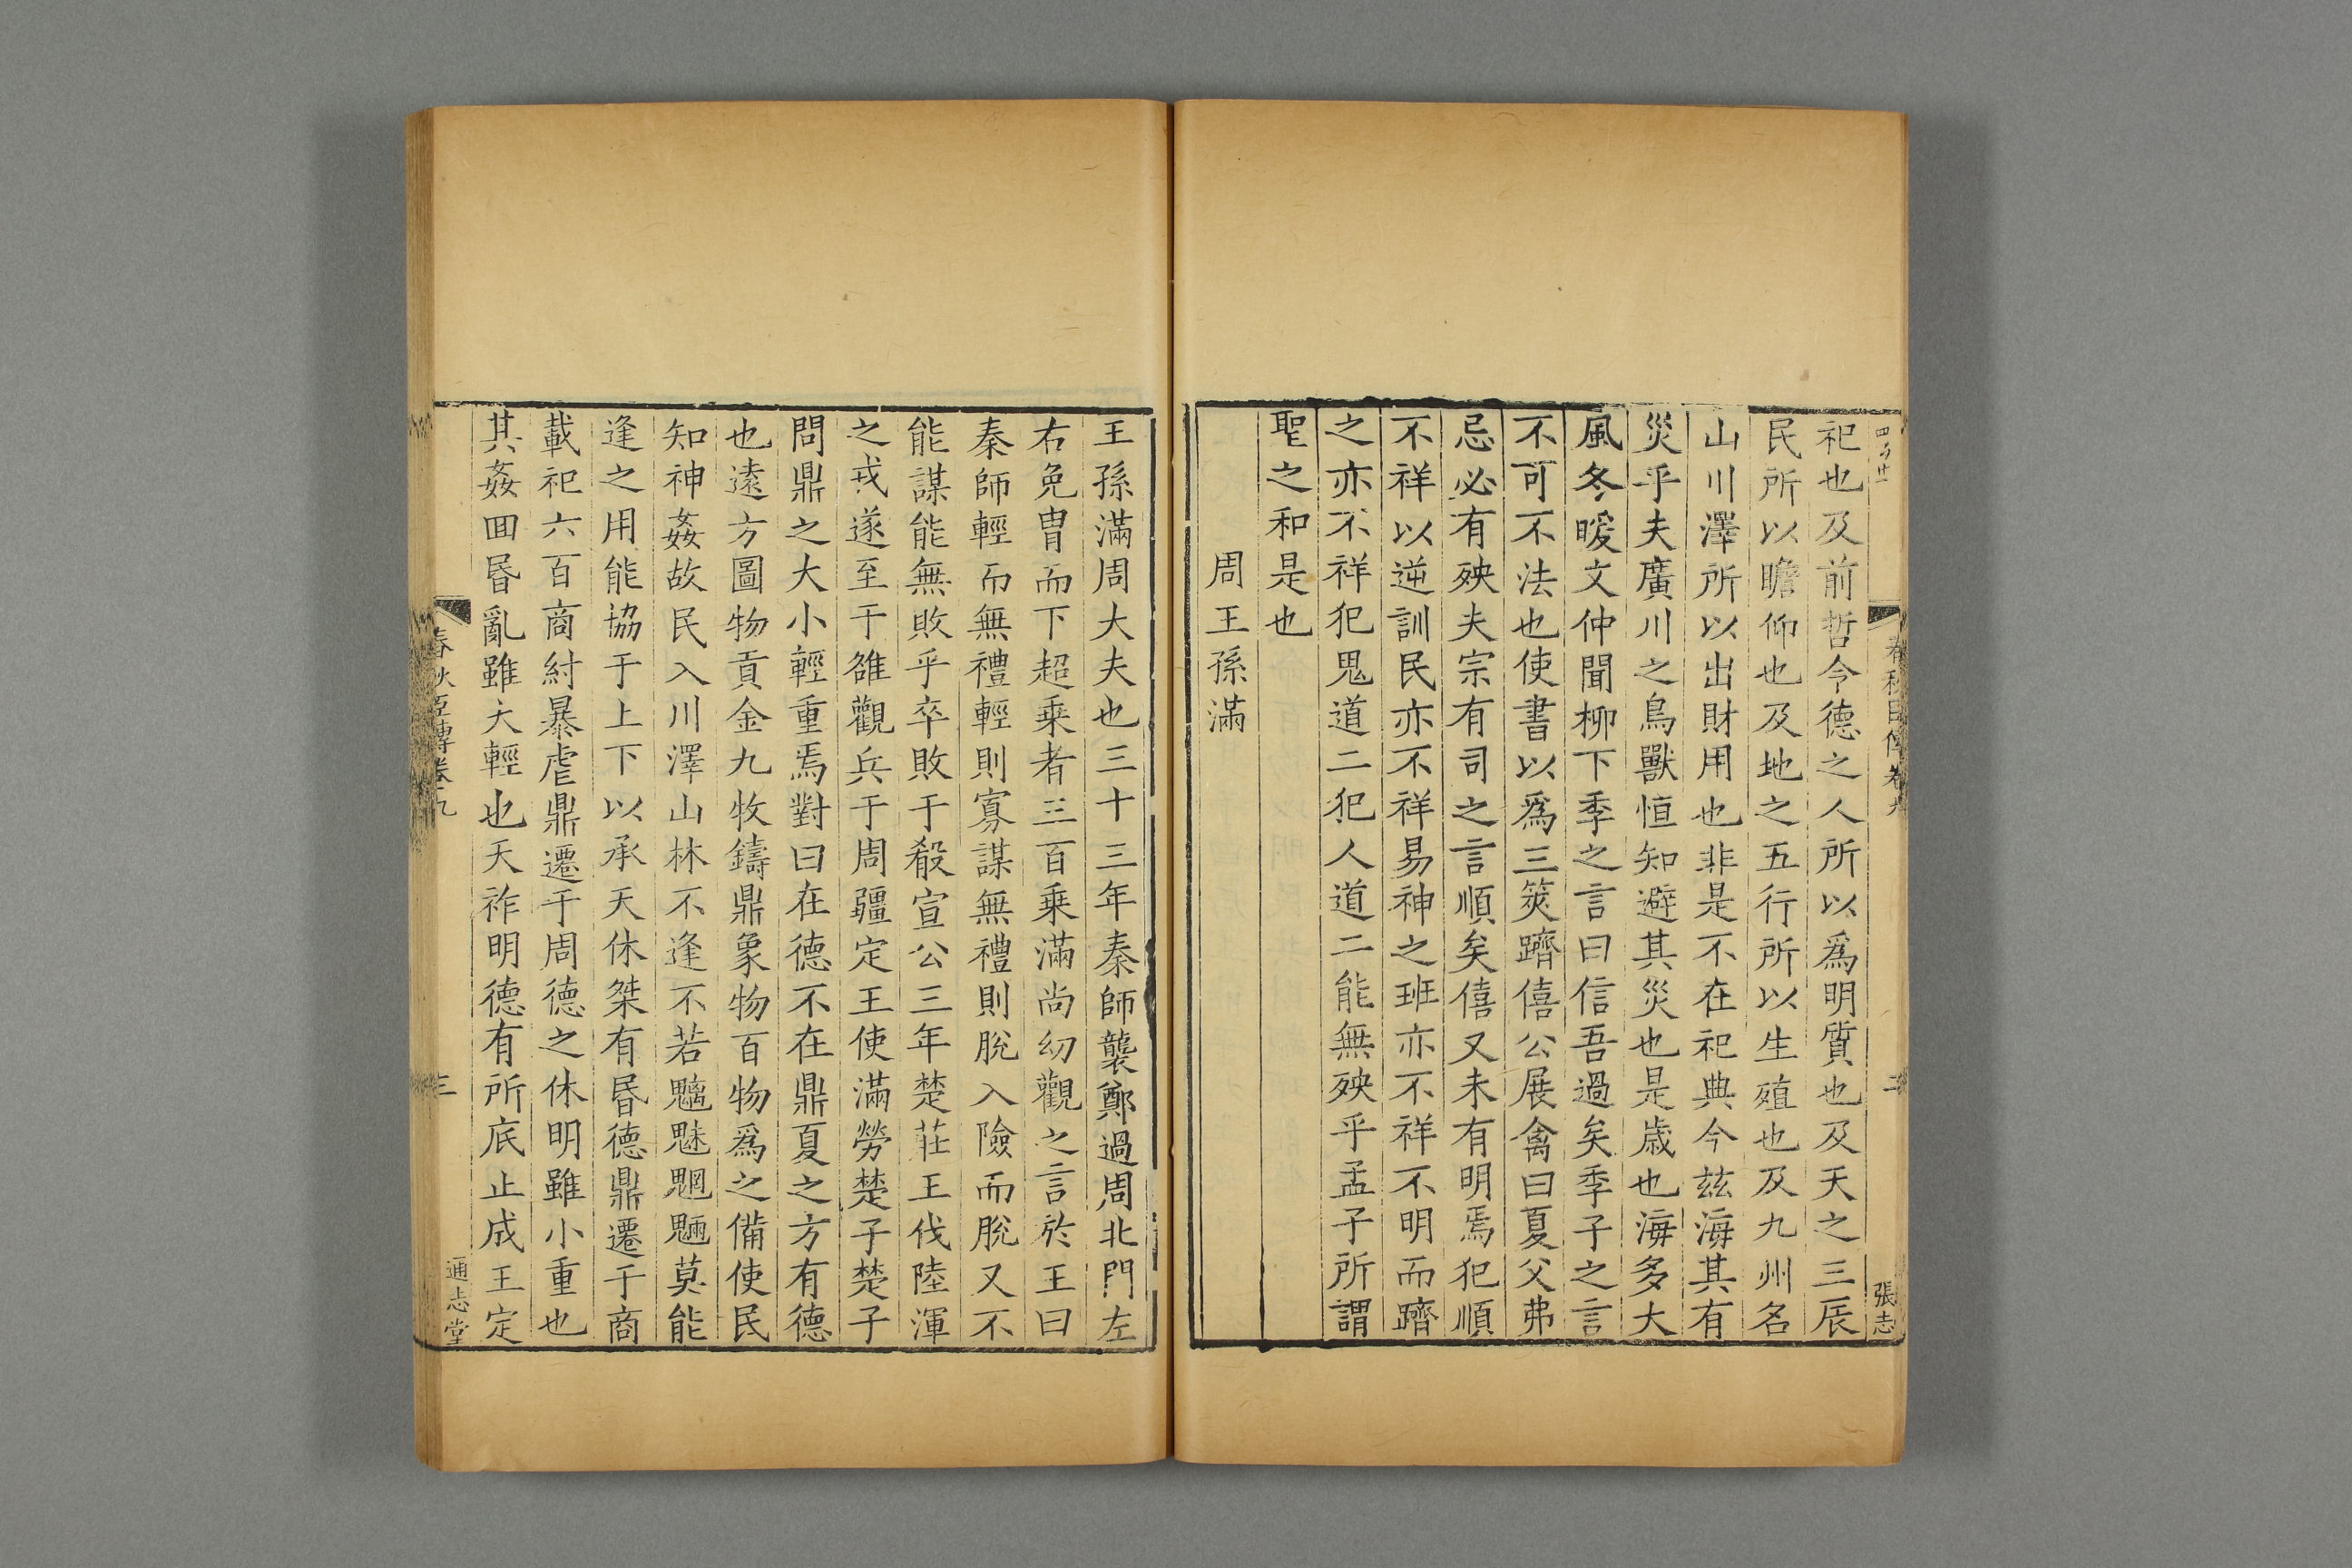 祀也及前哲令德之人所以爲明質也及天之三辰
民所以瞻仰也及地之五行所以生殖也及九州名
山川澤所以出財用也非是不在祀典今兹海其有
災乎夫廣川之鳥獸恒知避其災也是歲也海多大
風冬暖文仲聞柳下季之言曰信吾過矣季子之言
不可不法也使書以爲三筴躋僖公展禽曰夏父弗
忌必有殃夫宗有司之言順矣僖又未有明焉犯順
不祥以逆訓民亦不祥易神之班亦不祥不明而躋
之亦不祥犯鬼道二犯人道二能無殃乎孟子所謂
聖之和是也
周王孫滿
王孫滿周大夫也三十三年秦師襲鄭過周北門左
右免胄而下超乗者三百乗滿尚幼觀之言於王曰
秦師輕而無禮輕則寡謀無禮則脫入險而脫又不
能謀能無敗乎卒敗于殽宣公三年楚莊王伐陸渾
之戎遂至于雒觀兵于周疆定王使滿勞楚子楚子
問鼎之大小輕重焉對曰在德不在鼎夏之方有德
也遠方圖物貢金九牧鑄鼎象物百物爲之備使民
知神姦故民入川澤山林不逢不若魑魅魍魎莫能
逢之用能協于上下以承天休桀有昬德鼎遷于商
載祀六百商紂暴虐鼎遷于周德之休明雖小重也
其姦回昬亂雖大輕也天祚明德有所厎止成王定
春秋臣傳卷九
三
通志堂
春秋臣傳卷九
二
張志